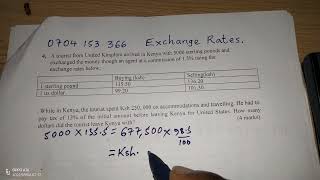 0704 153 366 Exchange Rates.
A tourist from United Kingdom arrived in Kenya with 5000 sterling pounds and
exchanged the money though an agent at a commission of 1.5% using the
exchange rates below.
Buying (ksh) Selling (ksh)
1 sterling pound 135.50
1 us dollar. 99.20 101.50
While in Kenya, the tourist spent Ksh 250, 000 on accommodations and travelling. He had to
pay tax of 12% of the initial amount before leaving Kenya for United States. How many
dollars did the tourist leave Kenya with? (4 marks)
5000 × 135.5 = 677,500 × 98.5
100
= Ksh.